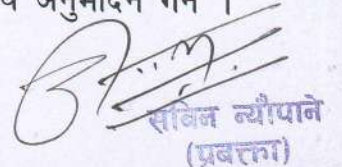 अनुमोदन गर्ने ।
सबिन न्यौपाने
(प्रवक्ता)